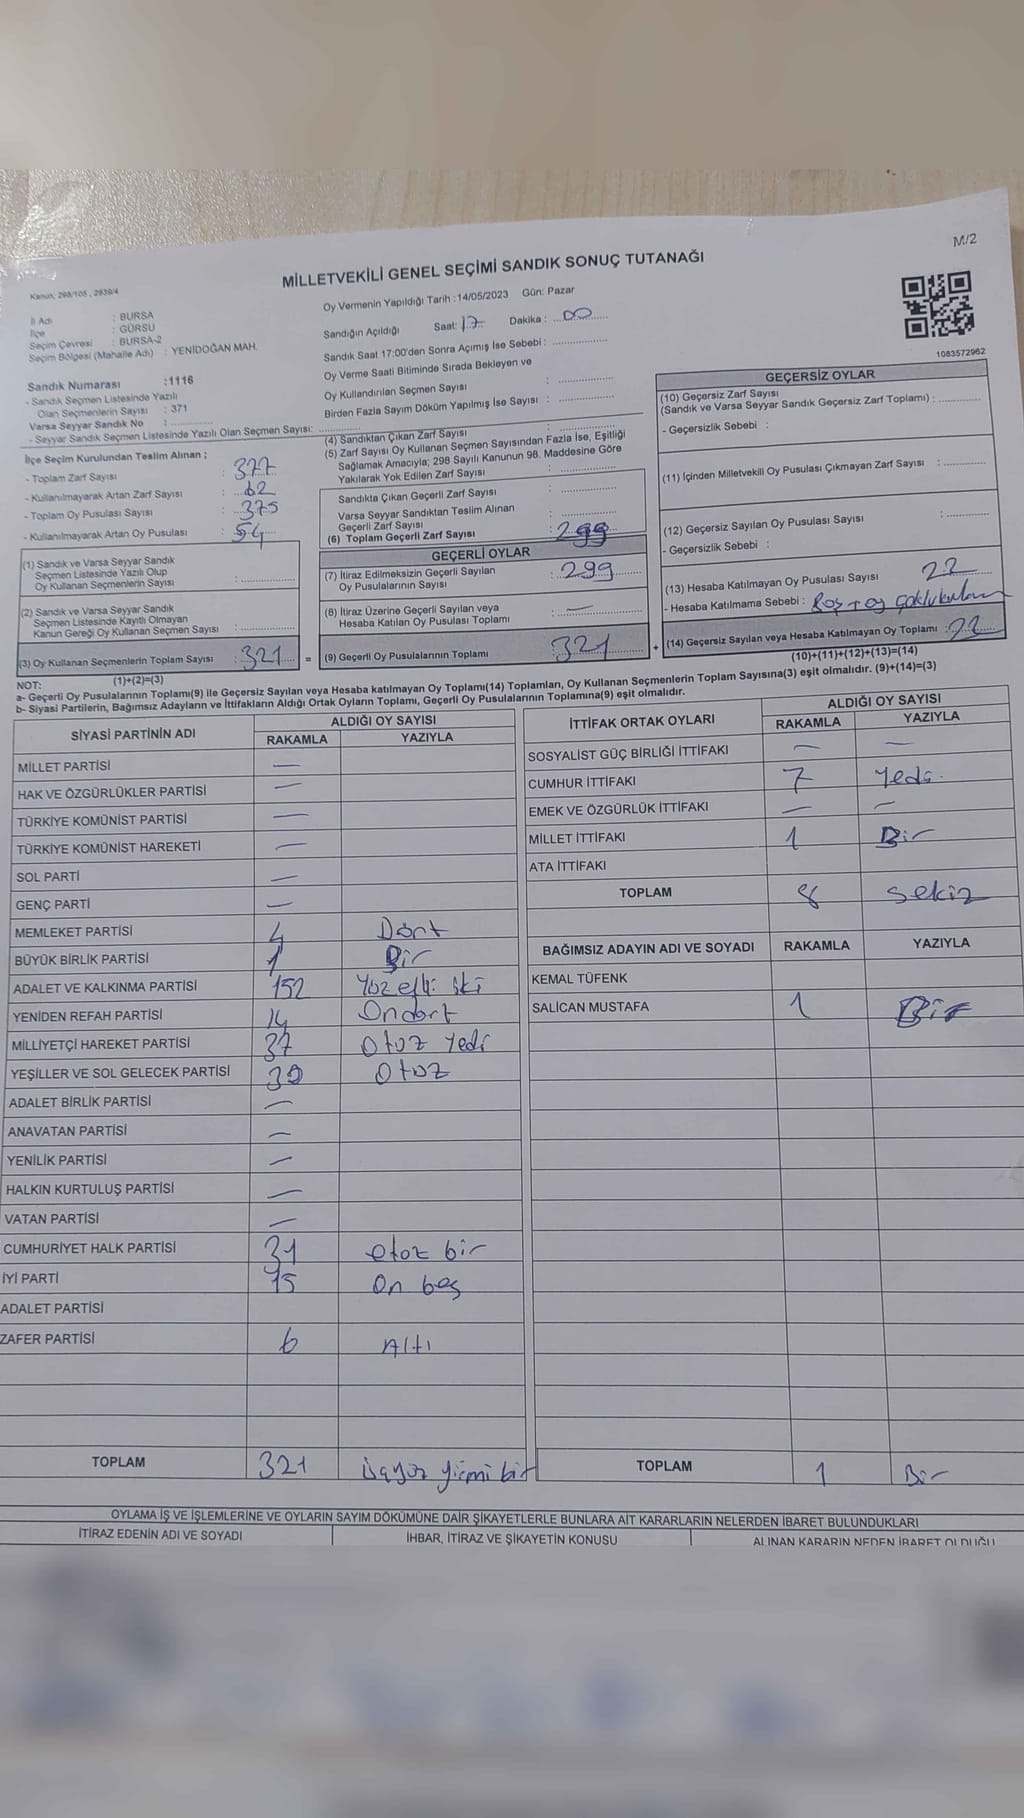 M/2
MİLLETVEKİLİ GENEL SEÇİMİ SANDIK SONUÇ TUTANAĞI
Kanun: 298/105 , 2839/4
İl Adı : BURSA
İlçe : GÜRSU
Seçim Çevresi : BURSA-2
Seçim Bölgesi (Mahalle Adı) : YENİDOĞAN MAH.
Sandık Numarası :1116
- Sandık Seçmen Listesinde Yazılı
Olan Seçmenlerin Sayısı : 371
Varsa Seyyar Sandık No :
- Seyyar Sandık Seçmen Listesinde Yazılı Olan Seçmen Sayısı:
İlçe Seçim Kurulundan Teslim Alınan ;
- Toplam Zarf Sayısı : 377
- Kullanılmayarak Artan Zarf Sayısı : 62
- Toplam Oy Pusulası Sayısı : 375
- Kullanılmayarak Artan Oy Pusulası : 54
(1) Sandık ve Varsa Seyyar Sandık
Seçmen Listesinde Yazılı Olup
Oy Kullanan Seçmenlerin Sayısı :
(2) Sandık ve Varsa Seyyar Sandık
Seçmen Listesinde Kayıtlı Olmayan
Kanun Gereği Oy Kullanan Seçmen Sayısı :
(3) Oy Kullanan Seçmenlerin Toplam Sayısı : 321 =
(1)+(2)=(3)
Oy Vermenin Yapıldığı Tarih :14/05/2023 Gün: Pazar
Sandığın Açıldığı Saat: 17 Dakika : 00
Sandık Saat 17:00'den Sonra Açımış İse Sebebi :
Oy Verme Saati Bitiminde Sırada Bekleyen ve
Oy Kullandırılan Seçmen Sayısı :
Birden Fazla Sayım Döküm Yapılmış İse Sayısı :
(4) Sandıktan Çıkan Zarf Sayısı :
(5) Zarf Sayısı Oy Kullanan Seçmen Sayısından Fazla İse, Eşitliği
Sağlamak Amacıyla; 298 Sayılı Kanunun 98. Maddesine Göre
Yakılarak Yok Edilen Zarf Sayısı :
Sandıkta Çıkan Geçerli Zarf Sayısı :
Varsa Seyyar Sandıktan Teslim Alınan
Geçerli Zarf Sayısı :
(6) Toplam Geçerli Zarf Sayısı : 299
GEÇERLİ OYLAR
(7) İtiraz Edilmeksizin Geçerli Sayılan
Oy Pusulalarının Sayısı : 299
(8) İtiraz Üzerine Geçerli Sayılan veya
Hesaba Katılan Oy Pusulası Toplamı : —
(9) Geçerli Oy Pusulalarının Toplamı : 321 +
1083572962
GEÇERSİZ OYLAR
(10) Geçersiz Zarf Sayısı
(Sandık ve Varsa Seyyar Sandık Geçersiz Zarf Toplamı) :
- Geçersizlik Sebebi :
(11) İçinden Milletvekili Oy Pusulası Çıkmayan Zarf Sayısı :
(12) Geçersiz Sayılan Oy Pusulası Sayısı :
- Geçersizlik Sebebi :
(13) Hesaba Katılmayan Oy Pusulası Sayısı 22
- Hesaba Katılmama Sebebi : Boş+oy
(14) Geçersiz Sayılan veya Hesaba Katılmayan Oy Toplamı : 22
(10)+(11)+(12)+(13)=(14)
NOT:
a- Geçerli Oy Pusulalarının Toplamı(9) ile Geçersiz Sayılan veya Hesaba katılmayan Oy Toplamı(14) Toplamları, Oy Kullanan Seçmenlerin Toplam Sayısına(3) eşit olmalıdır. (9)+(14)=(3)
b- Siyasi Partilerin, Bağımsız Adayların ve İttifakların Aldığı Ortak Oyların Toplamı, Geçerli Oy Pusulalarının Toplamına(9) eşit olmalıdır.
SİYASİ PARTİNİN ADI ALDIĞI OY SAYISI
RAKAMLA YAZIYLA
MİLLET PARTİSİ —
HAK VE ÖZGÜRLÜKLER PARTİSİ —
TÜRKİYE KOMÜNİST PARTİSİ —
TÜRKİYE KOMÜNİST HAREKETİ —
SOL PARTİ —
GENÇ PARTİ —
MEMLEKET PARTİSİ 4 Dört
BÜYÜK BİRLİK PARTİSİ 1 Bir
ADALET VE KALKINMA PARTİSİ 152 Yüz elli iki
YENİDEN REFAH PARTİSİ 14 Ondört
MİLLİYETÇİ HAREKET PARTİSİ 37 Otuz Yedi
YEŞİLLER VE SOL GELECEK PARTİSİ 30 Otuz
ADALET BİRLİK PARTİSİ —
ANAVATAN PARTİSİ —
YENİLİK PARTİSİ —
HALKIN KURTULUŞ PARTİSİ —
VATAN PARTİSİ —
CUMHURİYET HALK PARTİSİ 31 otoz bir
İYİ PARTİ 15 On beş
ADALET PARTİSİ
ZAFER PARTİSİ 6 Altı
TOPLAM 321 üçyüz yirmi bir
İTTİFAK ORTAK OYLARI ALDIĞI OY SAYISI
RAKAMLA YAZIYLA
SOSYALİST GÜÇ BİRLİĞİ İTTİFAKI — —
CUMHUR İTTİFAKI 7 Yedi.
EMEK VE ÖZGÜRLÜK İTTİFAKI — —
MİLLET İTTİFAKI 1 Bir
ATA İTTİFAKI
TOPLAM 8 Sekiz
BAĞIMSIZ ADAYIN ADI VE SOYADI RAKAMLA YAZIYLA
KEMAL TÜFENK
SALİCAN MUSTAFA 1 Bir
TOPLAM 1 Bir
OYLAMA İŞ VE İŞLEMLERİNE VE OYLARIN SAYIM DÖKÜMÜNE DAİR ŞİKAYETLERLE BUNLARA AİT KARARLARIN NELERDEN İBARET BULUNDUKLARI
İTİRAZ EDENİN ADI VE SOYADI İHBAR, İTİRAZ VE ŞİKAYETİN KONUSU ALINAN KARARIN NEDEN İBARET OLDUĞU